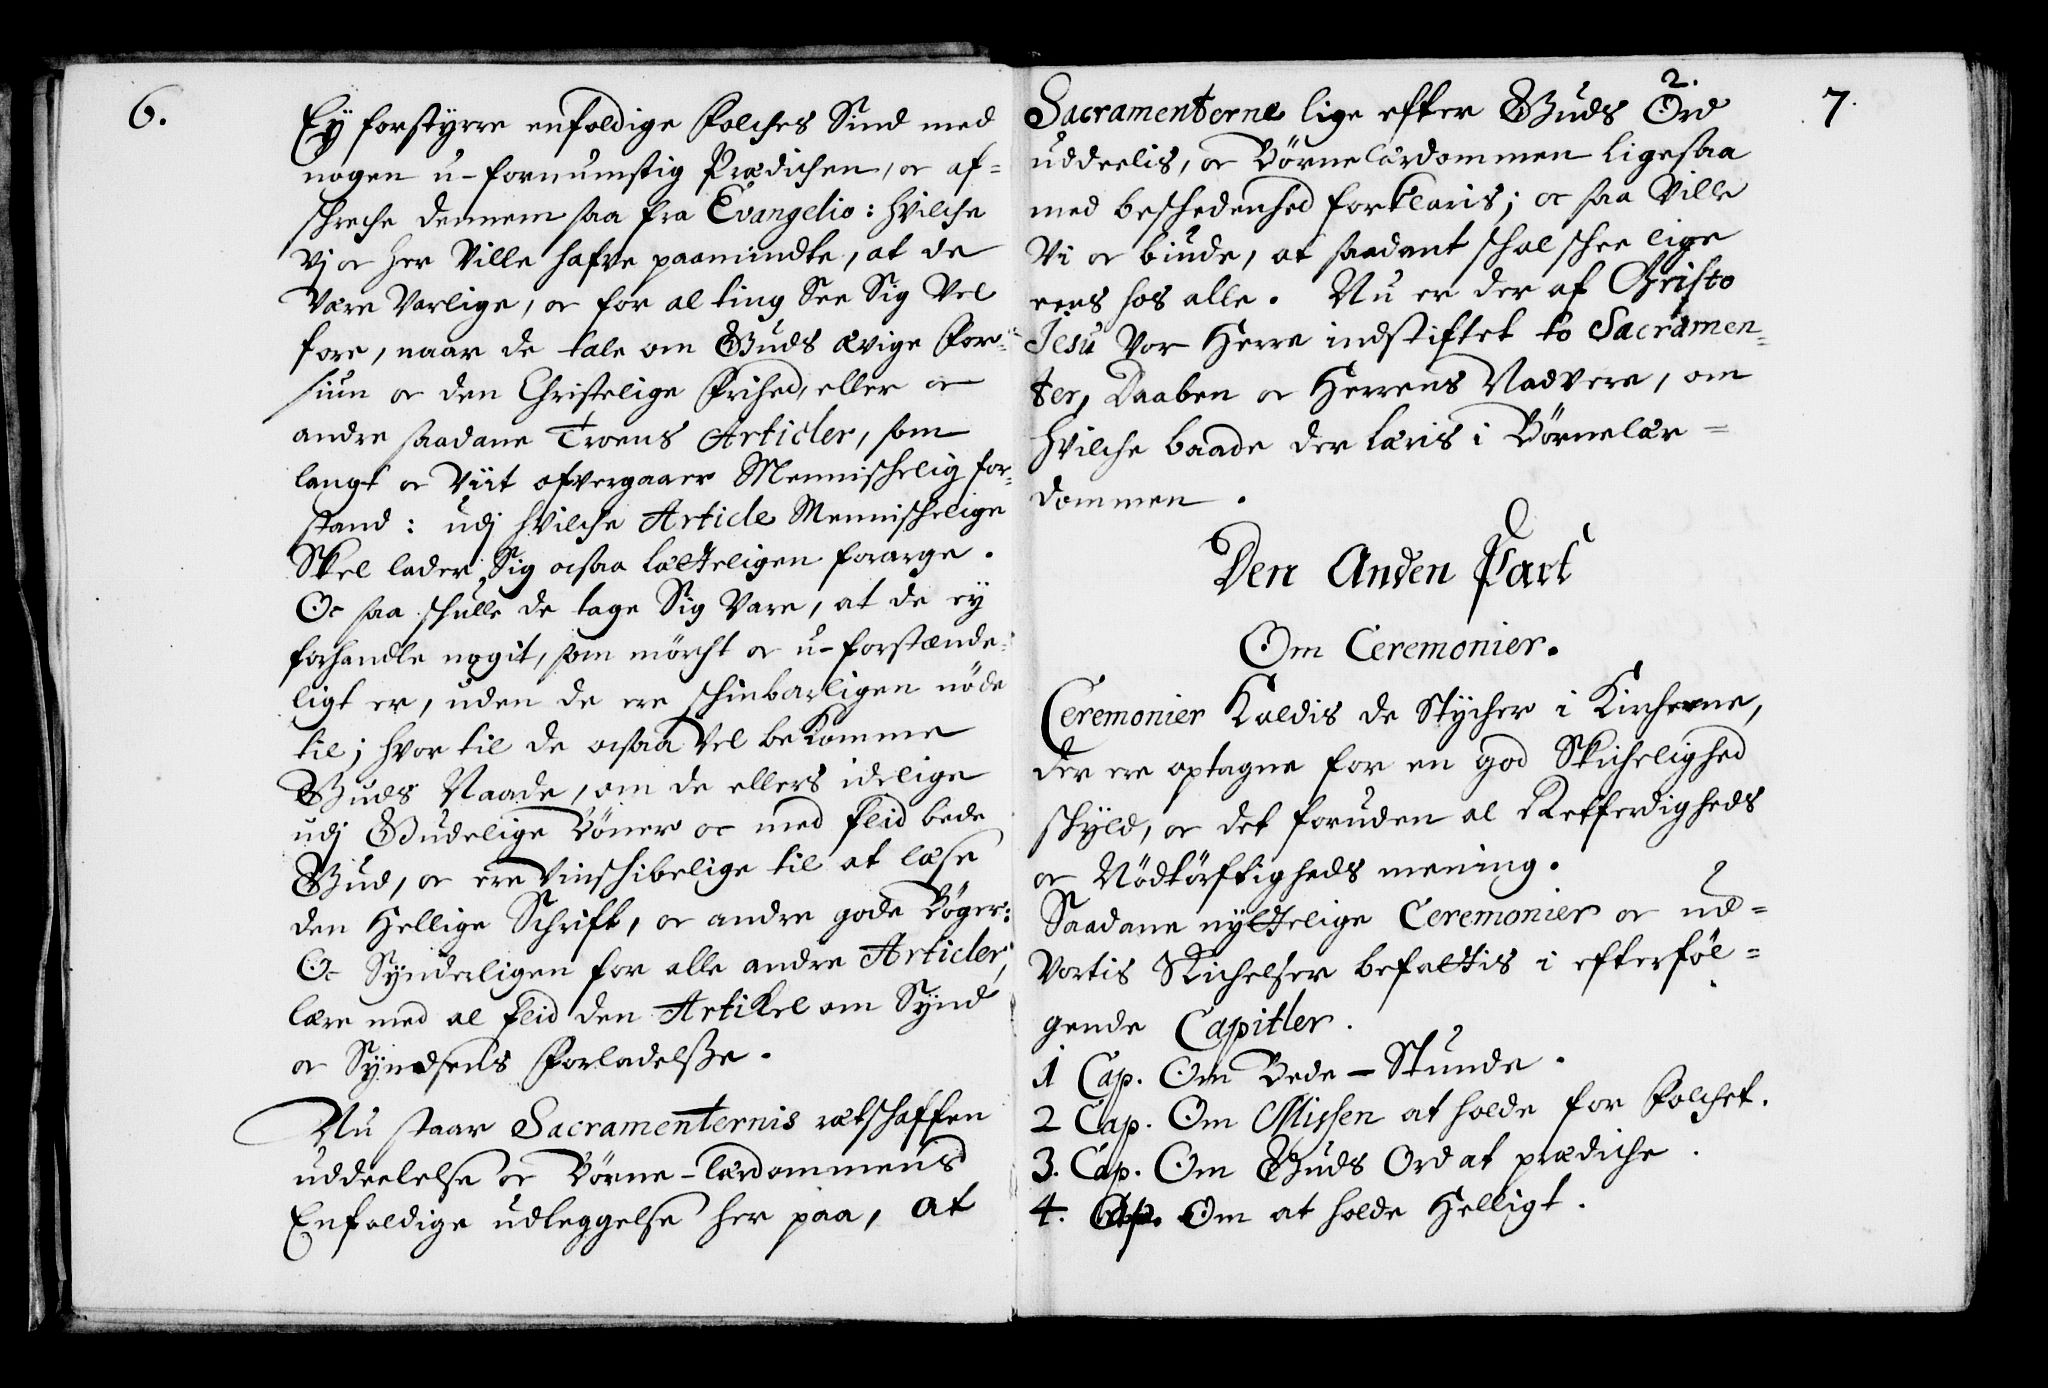 6.
Ey forstyrre enfoldige Folches Sind med
nogen u-fornumstig Prædichen, oc af-
schreche dennem saa fra Evangelio: hvilche
vj oc her Ville hafve paamindte, at de
Være Varlige, oc for al ting See Sig Vel
fore, naar de tale om Guds ævige For-
siun oc den Christelige Frihed, eller oc
andre saadane Troens Articler, som
langt oc Viit ofvergaaer Mennischelig for-
stand: udj hvilche Article Mennischelige
Skel lader Sig ocsaa lætteligen forarge.
Oc saa schulle de tage Sig Vare, at de ey
forhandle nogit, som mörcht oc u-forstænde-
ligt er, uden de ere schinbarligen nöde
til; hvor til de ocsaa Vel bekomme
Guds Naade, om de ellers idelige
udj Gudelige Böner oc med flid bede
Gud, oc ere Vinschibelige til at læse
den Hellige Schrift, oc andre gode Böger:
Oc Synderligen for alle andre Articler,
lære med al flid den Artikel om Synd
oc Syndsens Forladelsse.
Nu staar Sacramenternis rætschaffen
uddeelelse oc Börne-lærdommens
Enfoldige udleggelse her paa, at
2.
7.
Sacramenterne lige efter Guds Ord
uddeelis, oc Börnelærdommen ligesaa
med beschedenhed forklaris; oc saa Ville
Vi oc biude, at saadant schal schee lige
eens hos alle. Nu er der af Christo
Jesu Vor Herre indstiftet to Sacramen-
ter, Daaben oc Herrens Nadvere, om
hvilche baade der læris i Börnelær-
dommen.
Den Anden Part
Om Ceremonier.
Ceremonier Kaldis de Stycher i Kircherne,
der ere optagne for en god Skichelighed
schyld, oc det foruden al Retferdigheds
oc Nödtörftigheds mening.
Saadane nyttelige Ceremonier oc ud-
Vortis Skichelser befattis i efterföl-
gende Capitler.
1 Cap. Om Bede-Stunde.
2 Cap. Om Missen at holde for Folchet.
3. Cap. Om Guds Ord at prædiche.
4. Cap. Om at holde Helligt.